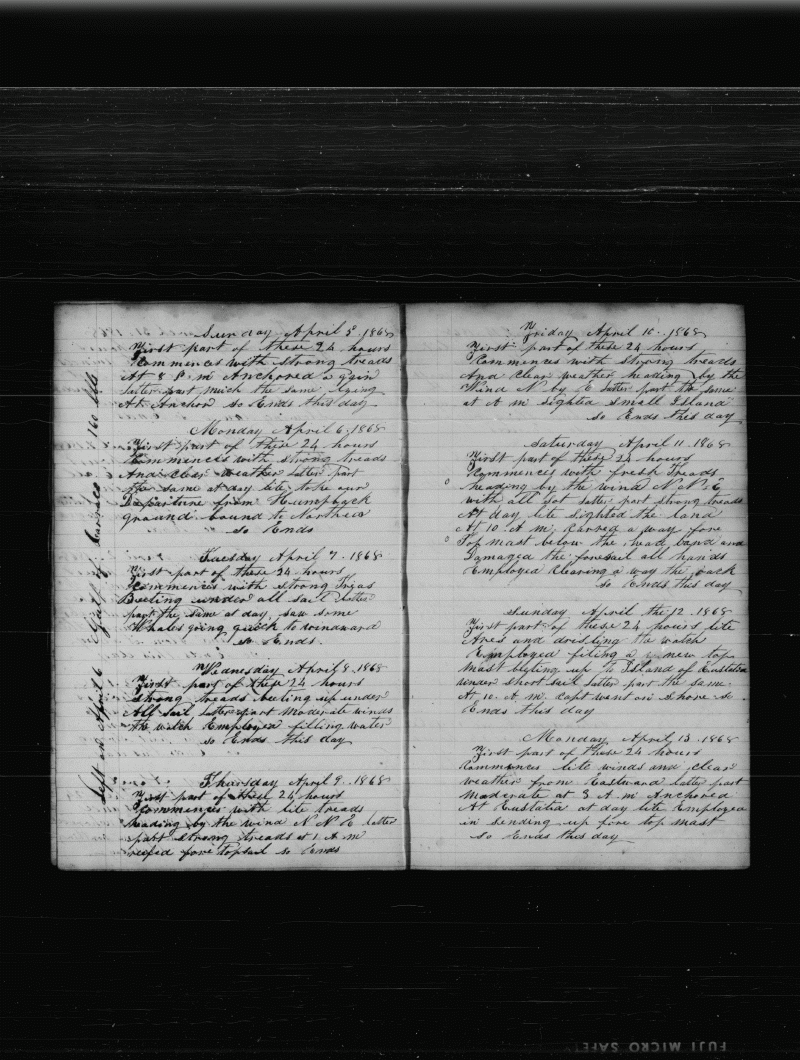 Sunday April 5 . 1868
First part of these 24 hours
Commences with strong treads
At 8 P. m Anchored again
latter part much the same lying
At Anchor so Ends this day
Monday April 6 . 1868
First part of these 24 hours
Commences with strong treads
And clear weather latter part
the same at day lite took our
Departure from Humpback
ground bound to Northard
so Ends
Tuesday April 7 . 1868
First part of these 24 hours
Commences with strong treads
Beeting under all sail latter
part the same at day, saw some
Whales going quick to windward
so Ends.
Wednesday April 8 . 1868
First part of these 24 hours
Strong treads beeting up under
All Sail latter part Moderate winds
the watch Employed filling water
so Ends this day
Thursday April 9 . 1868
First part of these 24 hours
Commences with lite treads
heading by the wind N N E latter
part strong treads at 1 A m
reefed fore topsail so Ends
Left on April 6 Gulf of 160 bbls
Friday April 10 . 1868
First part of these 24 hours
Commences with strong treads
And clear weather heading by the
Wind N by E latter part the same
at A m sighted small Island
so Ends this day
Saturday April 11 . 1868
First part of these 24 hours
Commences with fresh treads
heading by the wind N N E
with all sail latter part strong treads
At day lite sighted the land
At 10 A m. Carred a way fore
Top mast below the head band and
Damaged the foresail all hands
Employed clearing a way the rack
so Ends this day
Sunday April the 12 . 1868
First part of these 24 hours lite
Ares and drisling the watch
Employed fiting a new top
Mast beeting up to Island of Eustatia
under short sail latter part the same
At 10. A. m. Capt went on shore so
Ends this day
Monday April 13 . 1868
First part of these 24 hours
Commences lite winds and clear
weather from Eastward latter part
Moderate at 3 A m Anchored
At Eustatia at day lite Employed
in sending up fore top mast
so Ends this day
FUJI MICRO SAFE